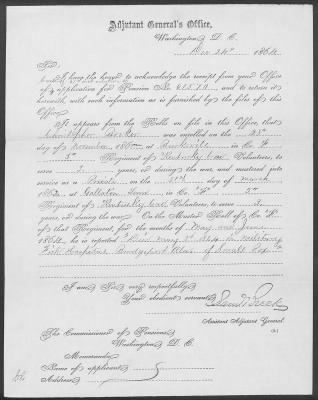 Adjutant General's Office,
Washington, D. C.
Dec 24th, 1864
Sir:
I have the honor to acknowledge the receipt from your Office
of application for Pension No. and to return it
herewith, with such information as is furnished by the files of this
Office.
It appears from the Rolls on file in this Office, that
was enrolled on the
day of , 186 , at in Co.
5" Regiment of Kentucky Cav. Volunteers, to
serve 3 years, or during the war, and mustered into
service as a Private on the day of March
1862, at Gallatin Tenn in Co. "H" 5"
Regiment of Kentucky Cav. Volunteers, to serve 3
years, or during the war. On the Muster Roll of Co. "H"
of that Regiment, for the months of May and June
1864, he is reported
Hospital Bridgeport Ala. of Small Pox
I am, Sir, very respectfully,
Your obedient servant,
Assistant Adjutant General
The Commissioner of Pensions,
Washington, D. C.
Memoranda:
Name of applicant,
Address,